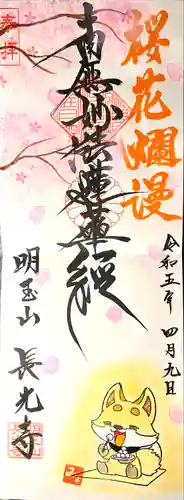 桜花爛漫
令和五年 四月九日
奉拝
南無妙法蓮華経
明玉山 長光寺